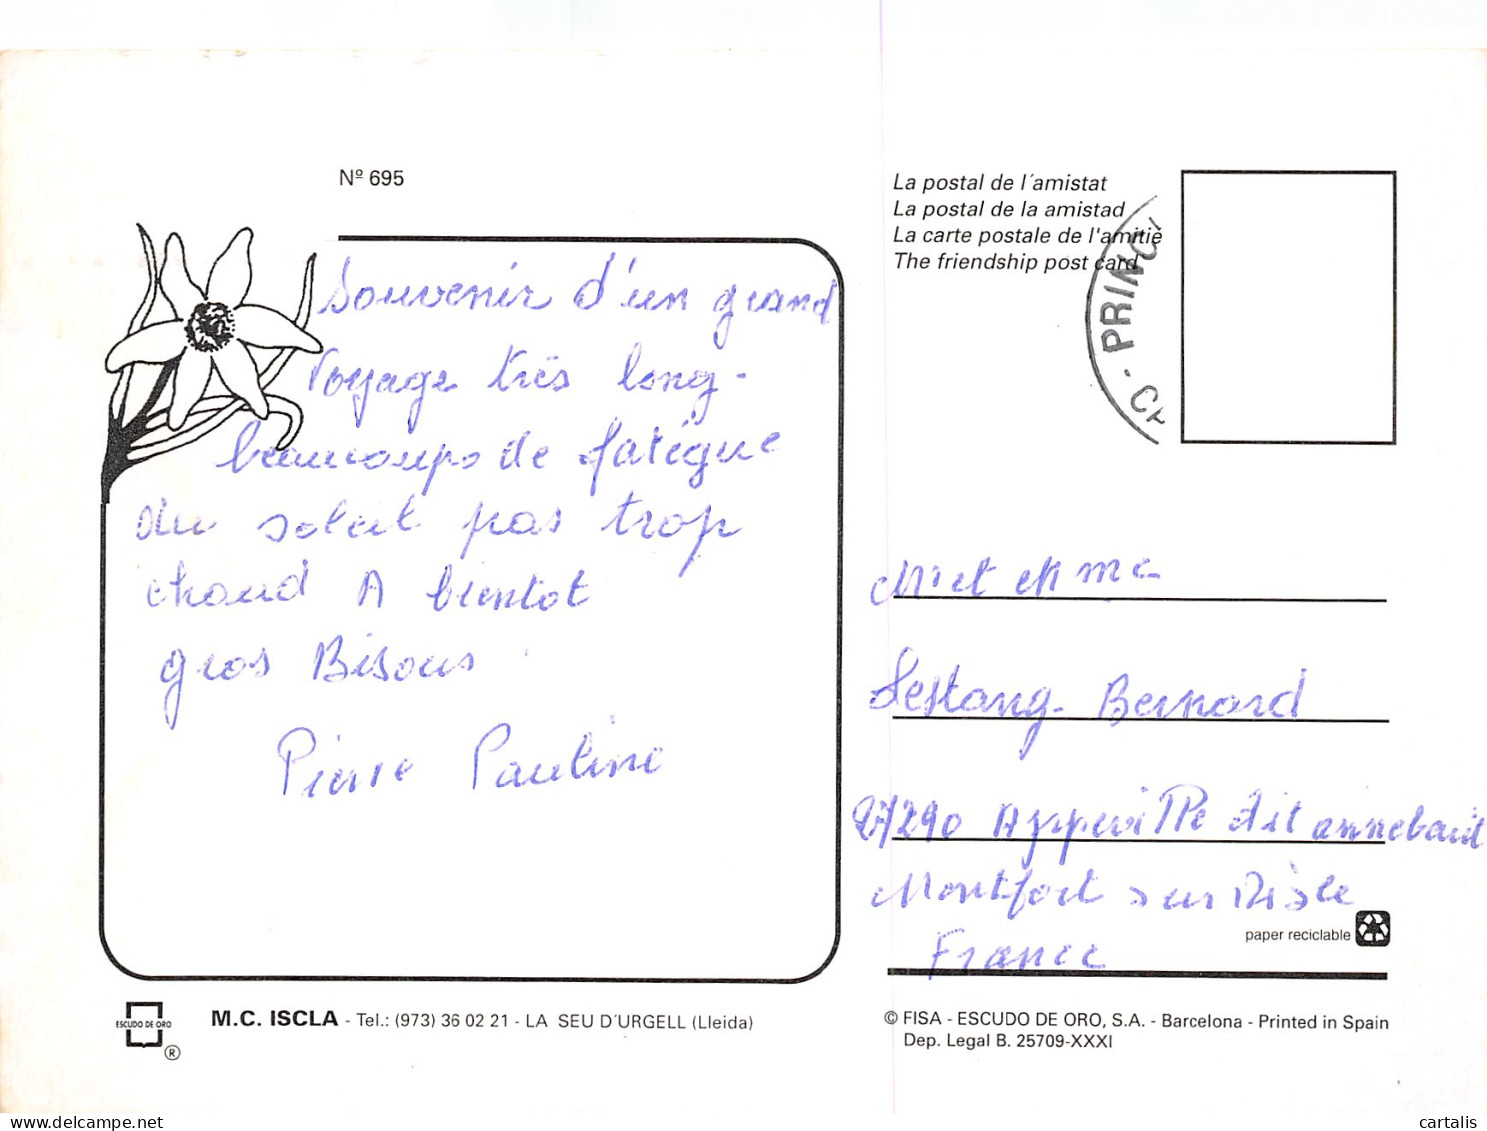 Nº 695
Souvenir d'un grand
Voyage très long-
beaucoups de fatigue
du soleil pas trop
chaud A bientot
gros Bisous.
Pierre Pauline
La postal de l´amistat
La postal de la amistad
La carte postale de l'amitiè
The friendship post card
· PRINCI
Mr et Mme
Lestang-Bernard
27290 Appeville dit annebault
Montfort sur Risle
France
paper reciclable
ESCUDO DE ORO
®
M.C. ISCLA - Tel.: (973) 36 02 21 - LA SEU D´URGELL (Lleida)
© FISA - ESCUDO DE ORO, S.A. - Barcelona - Printed in Spain
Dep. Legal B. 25709-XXXI
cartalis